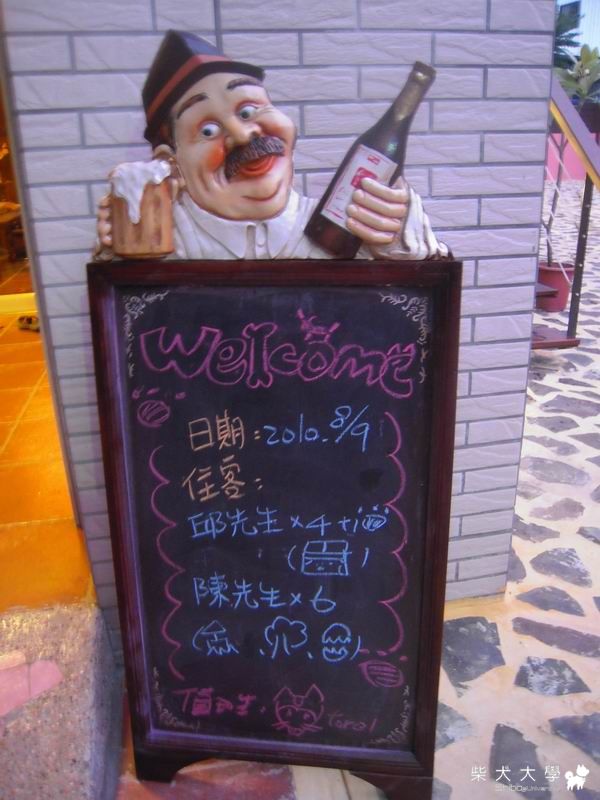 Welcome
日期：2010. 8/9
住客：
邱先生×4+1
陳先生×6
(魚
柴犬大學
Shiba University